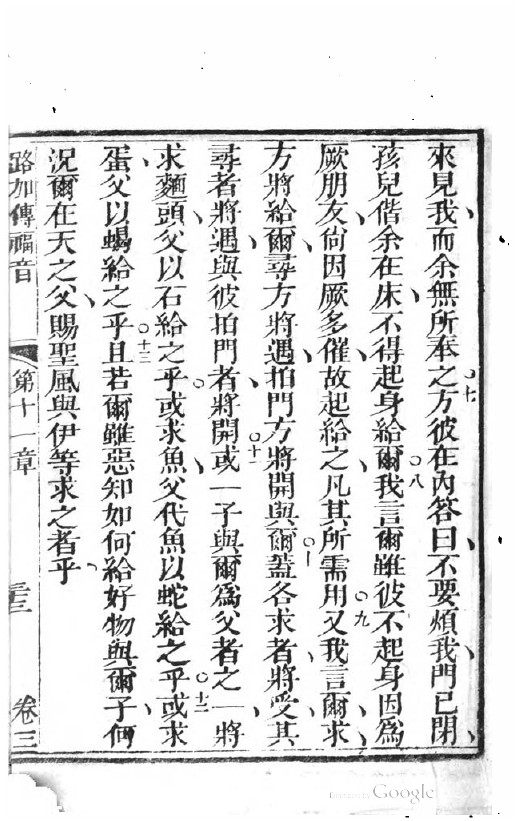 來見我而余無所奉之○七方彼在內答曰不要煩我門已閉
孩兒偕余在床不得起身給爾○八我言爾雖彼不起身因為
厥朋友尙因厥多催故起給之凡其所需用○九又我言爾求
方將給爾尋方將遇拍門方將開與爾○十蓋各求者將受其
尋者將遇與彼拍門者將開○十一或一子與爾為父者之一將
求麵頭父以石給之乎○或求魚父代魚以蛇給之乎○十二或求
蛋父以蝎給之乎○十三且若爾雖惡知如何給好物與爾子何
況爾在天之父賜聖風與伊等求之者乎
路加傳福音 第十一章 三三 卷三
Digitized by Google